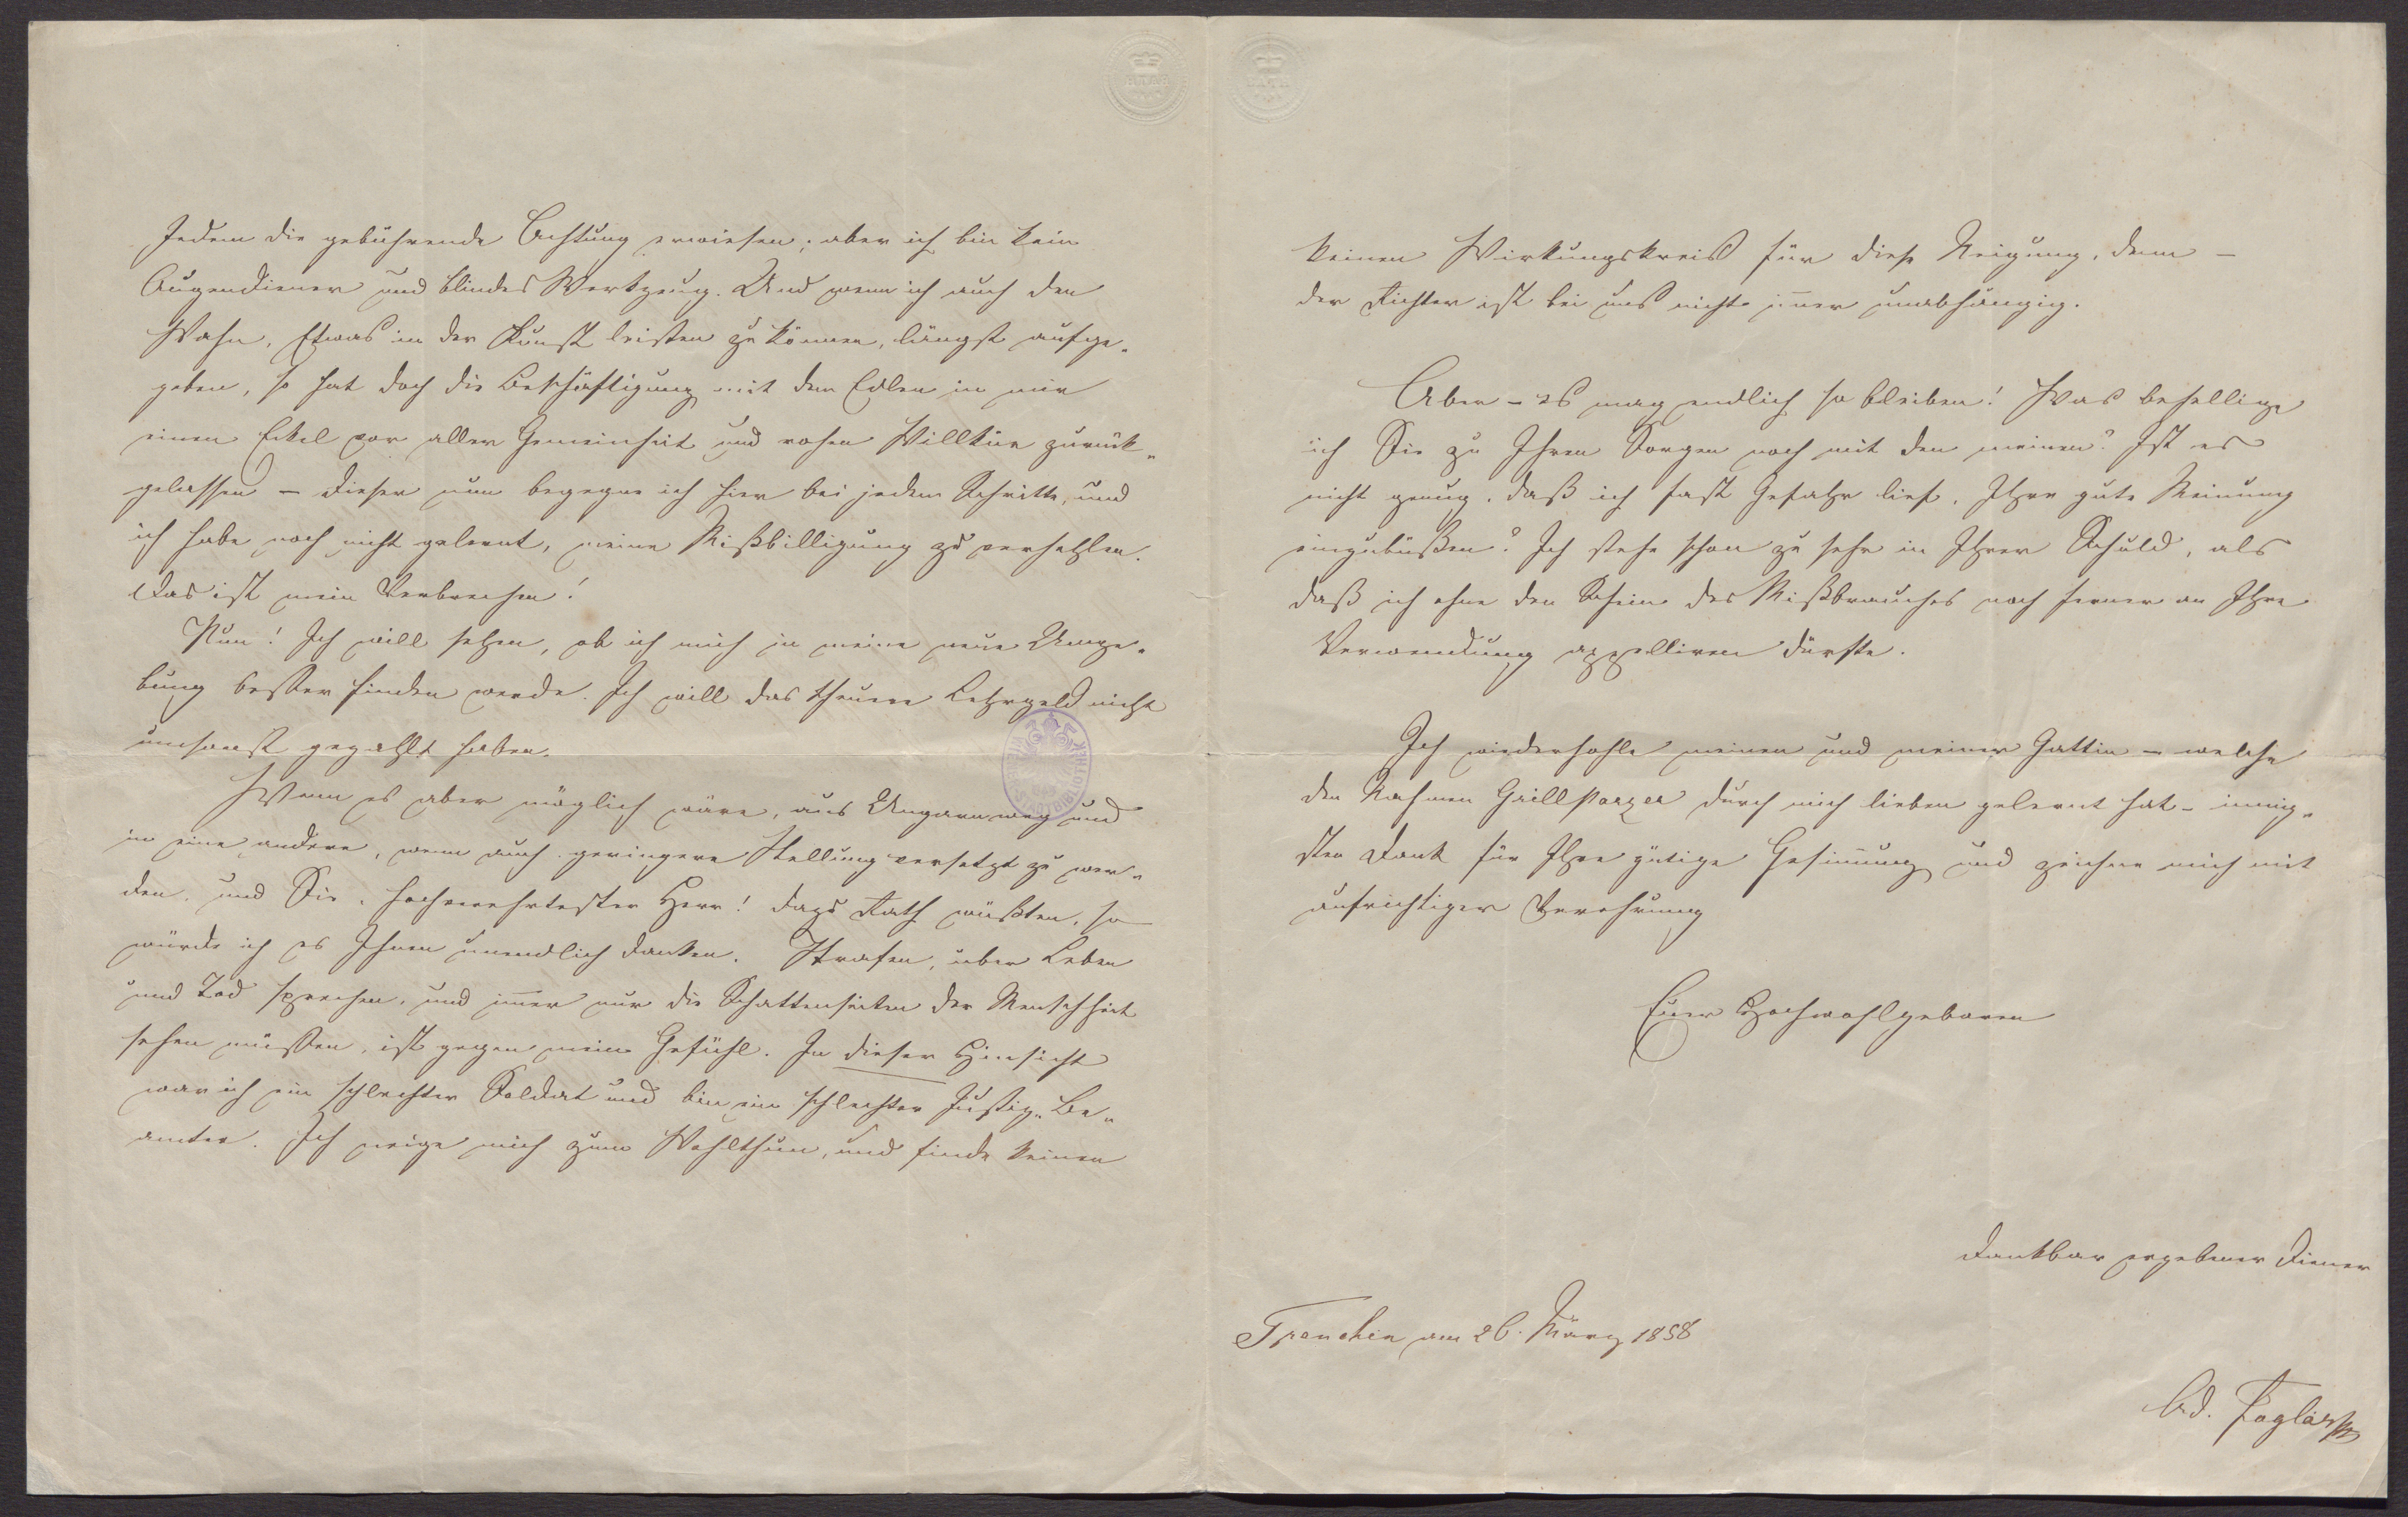 Jedem die gebührende Achtung erwiesen; aber ich bin kein
Augendiener und blindes Werkzeug. Und wenn ich auch den
Wahn, Etwas in der Kunst leisten zu können, längst aufge„
geben, so hat doch die Beschäftigung mit dem Edlen in mir
einen Eckel vor aller Gemeinheit und rohen Willkür zurück„
gelassen – dieser nun begegne ich hier bei jedem Schritte, und
ich habe noch nicht gelernt, meine Mißbilligung zu verhehlen.
Das ist mein Verbrechen!
Nun! Ich will sehen, ob ich mich in meine neue Umge„
bung besser finden werde. Ich will das theuere Lehrgeld nicht
umsonst gezahlt haben.
Wenn es aber möglich wäre, aus Ungarn weg und
in eine andere, wenn auch geringere Stellung versetzt zu wer„
den, und Sie, hochverehrtester Herr! dazu Rath wüßten, so
würde ich es Ihnen unendlich danken. Strafen, über Leben
und Tod sprechen, und im̄er nur die Schattenseiten der Menschheit
sehen müssen, ist gegen mein Gefühl. In dieser Hinsicht
war ich ein schlechter Soldat und bin ein schlechter Justiz„Be„
amter. Ich neige mich zum Wohlthun, und finde keinen
keinen Wirkungskreis für diese Neigung, denn –
der Richter ist bei uns nicht im̄er unabhängig.
Aber – es mag endlich so bleiben! Was behellige
ich Sie zu Ihren Sorgen noch mit den meinen? Ist es
nicht genug, daß ich fast Gefahr lief, Ihre gute Meinung
einzubüßen? Ich stehe schon zu sehr in Ihrer Schuld, als
daß ich ohne den Schein des Mißbrauches noch ferner an Ihre
Verwendung appelliren dürfte.
Ich wiederhohle meinen und meiner Gattin – welche
den Nahmen Grillparzer durch mich lieben gelernt hat – innig„
sten Dank für Ihre gütige Gesin̄ung und zeichne mich mit
aufrichtiger Verehrung
Euer Hochwohlgeboren
dankbar ergebener Diener
Trenchin am 26. März 1858
Ad. Foglár